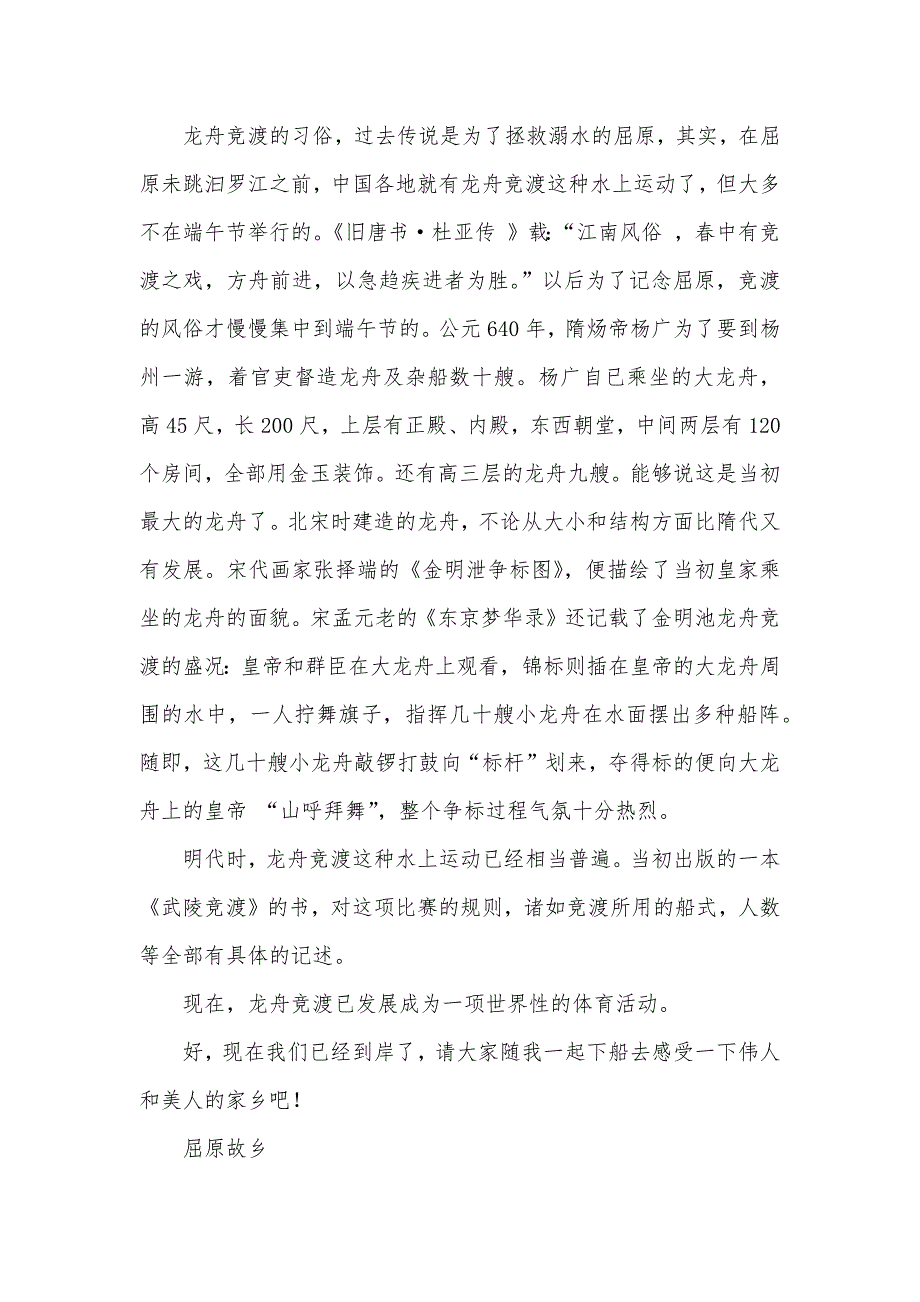 龙舟竞渡的习俗，过去传说是为了拯救溺水的屈原，其实，在屈
原未跳汨罗江之前，中国各地就有龙舟竞渡这种水上运动了，但大多
不在端午节举行的。《旧唐书·杜亚传 》载：“江南风俗 ，春中有竞
渡之戏，方舟前进，以急趋疾进者为胜。”以后为了记念屈原，竞渡
的风俗才慢慢集中到端午节的。公元 640 年，隋炀帝杨广为了要到杨
州一游，着官吏督造龙舟及杂船数十艘。杨广自已乘坐的大龙舟，
高 45 尺，长 200 尺，上层有正殿、内殿，东西朝堂，中间两层有 120
个房间，全部用金玉装饰。还有高三层的龙舟九艘。能够说这是当初
最大的龙舟了。北宋时建造的龙舟，不论从大小和结构方面比隋代又
有发展。宋代画家张择端的《金明泄争标图》，便描绘了当初皇家乘
坐的龙舟的面貌。宋孟元老的《东京梦华录》还记载了金明池龙舟竞
渡的盛况：皇帝和群臣在大龙舟上观看，锦标则插在皇帝的大龙舟周
围的水中，一人拧舞旗子，指挥几十艘小龙舟在水面摆出多种船阵。
随即，这几十艘小龙舟敲锣打鼓向“标杆”划来，夺得标的便向大龙
舟上的皇帝 “山呼拜舞”，整个争标过程气氛十分热烈。
明代时，龙舟竞渡这种水上运动已经相当普遍。当初出版的一本
《武陵竞渡》的书，对这项比赛的规则，诸如竞渡所用的船式，人数
等全部有具体的记述。
现在，龙舟竞渡已发展成为一项世界性的体育活动。
好，现在我们已经到岸了，请大家随我一起下船去感受一下伟人
和美人的家乡吧！
屈原故乡